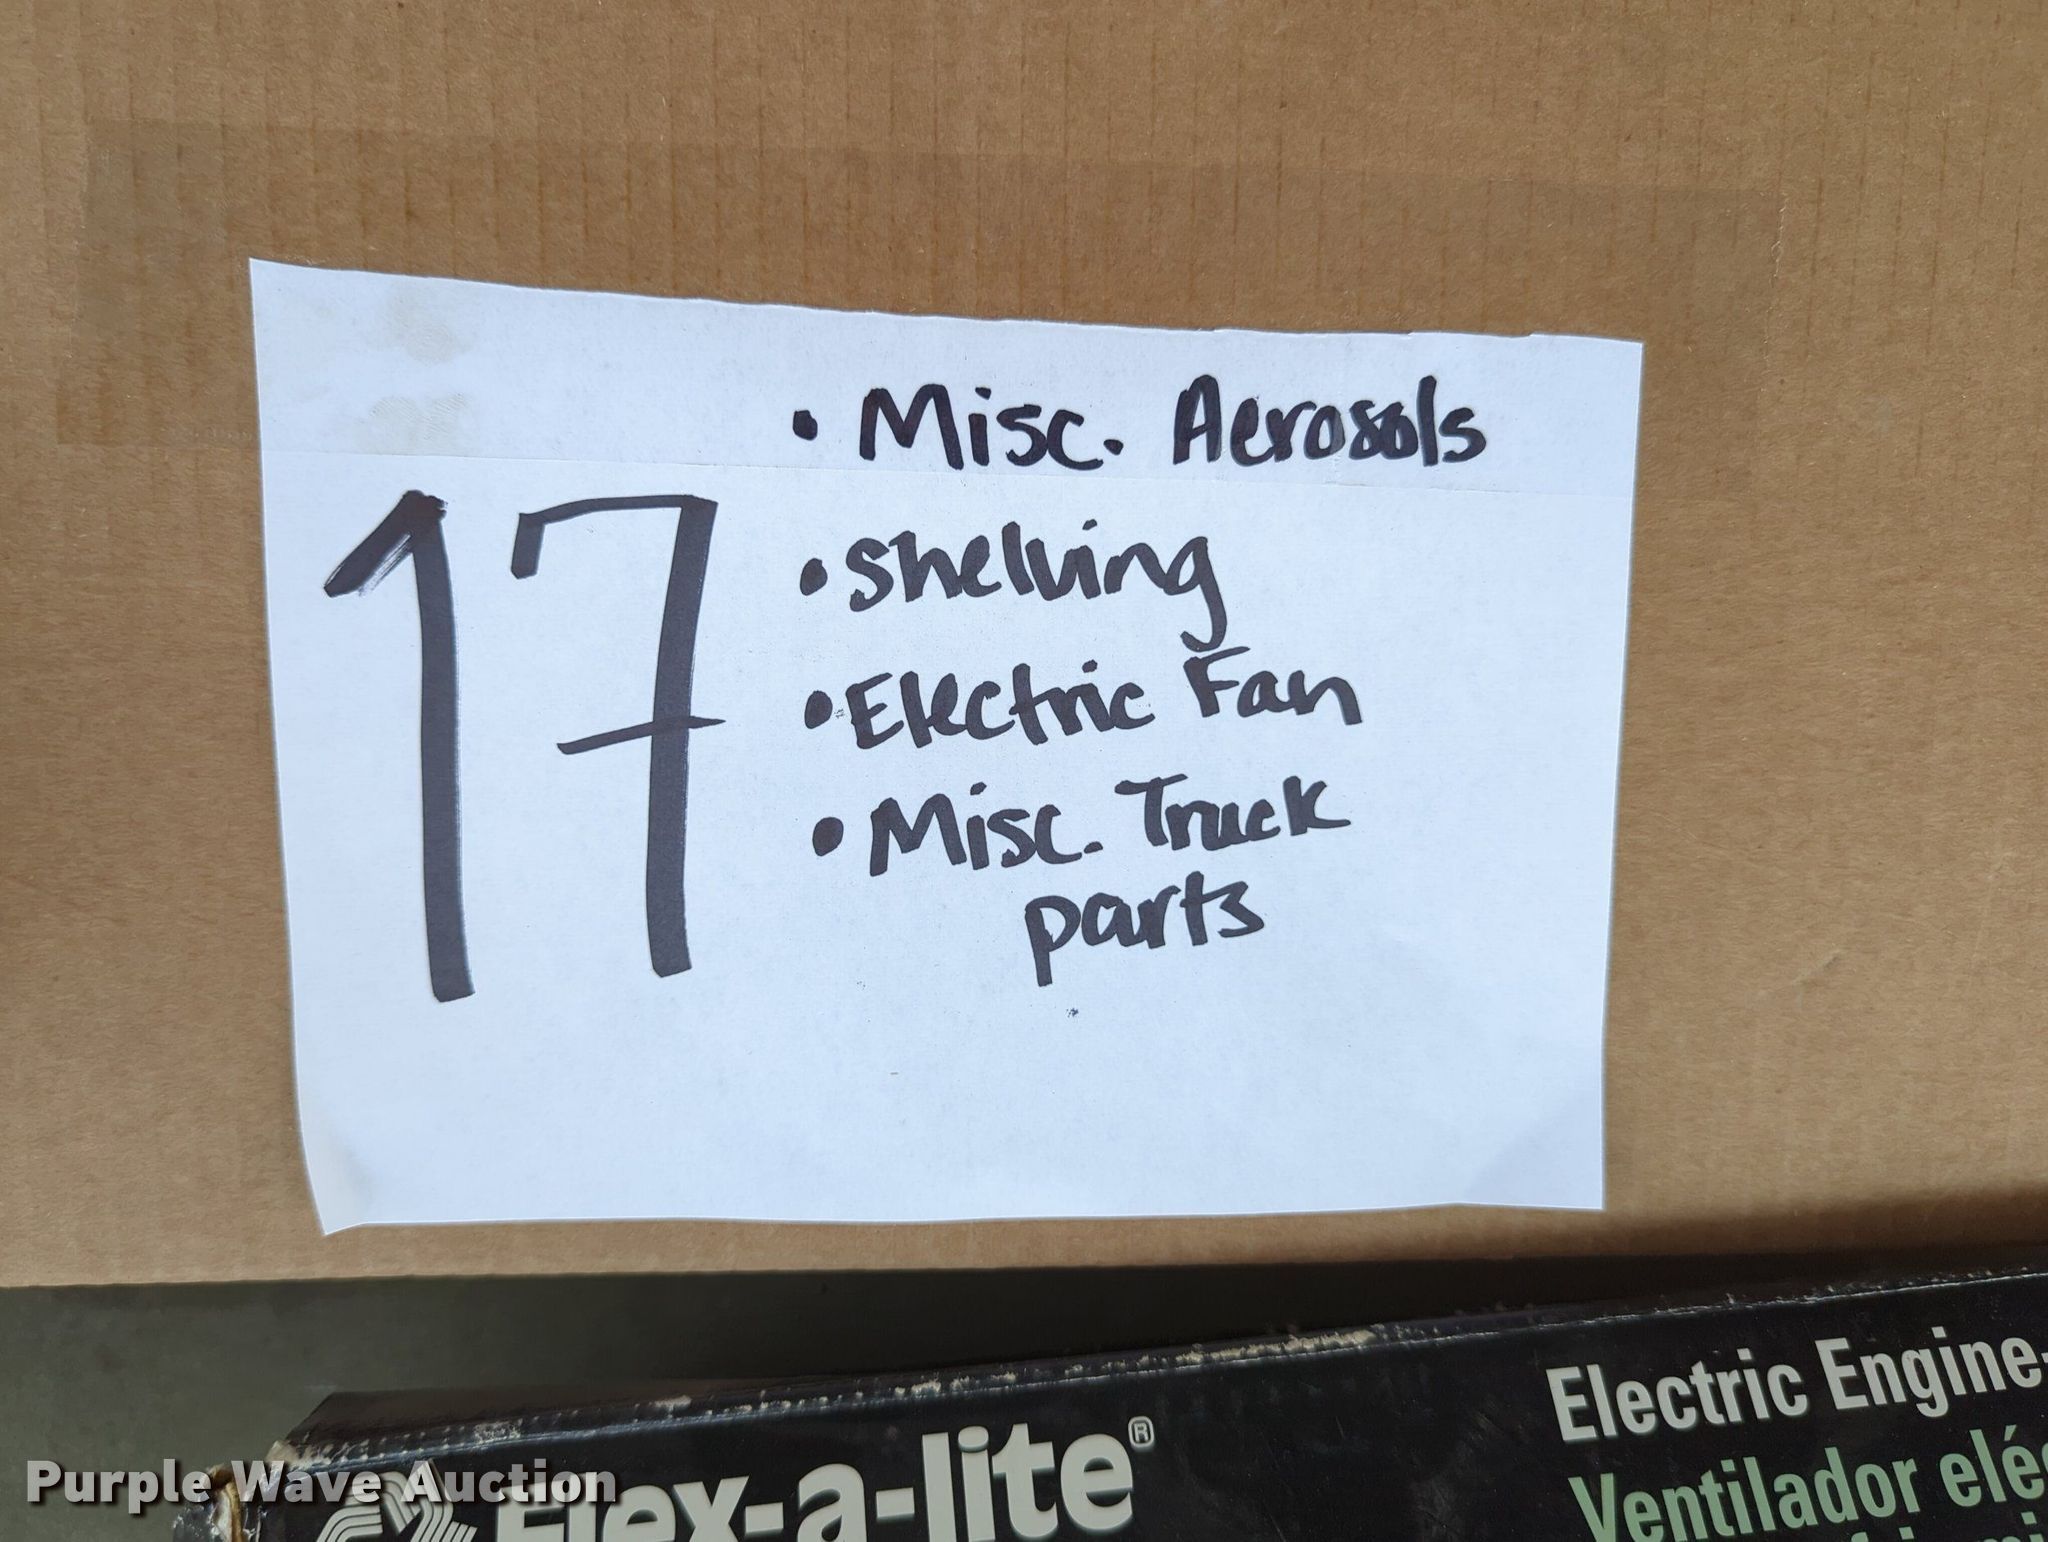 17
• Misc. Aerosols
• Shelving
• Electric Fan
• Misc. Truck
parts
Flex-a-lite®
Electric Engine-
Ventilador
Purple Wave Auction